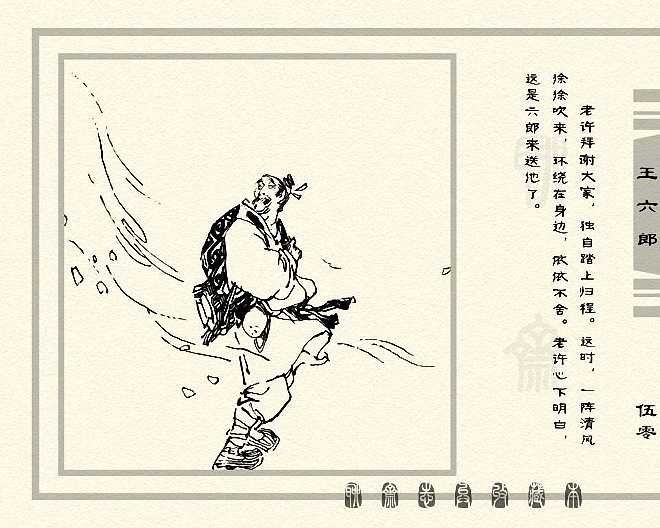 老许拜谢大家，独自踏上归程。这时，一阵清风
徐徐吹来，环绕在身边，依依不舍。老许心下明白，
这是六郎来送他了。
王六郎
伍零